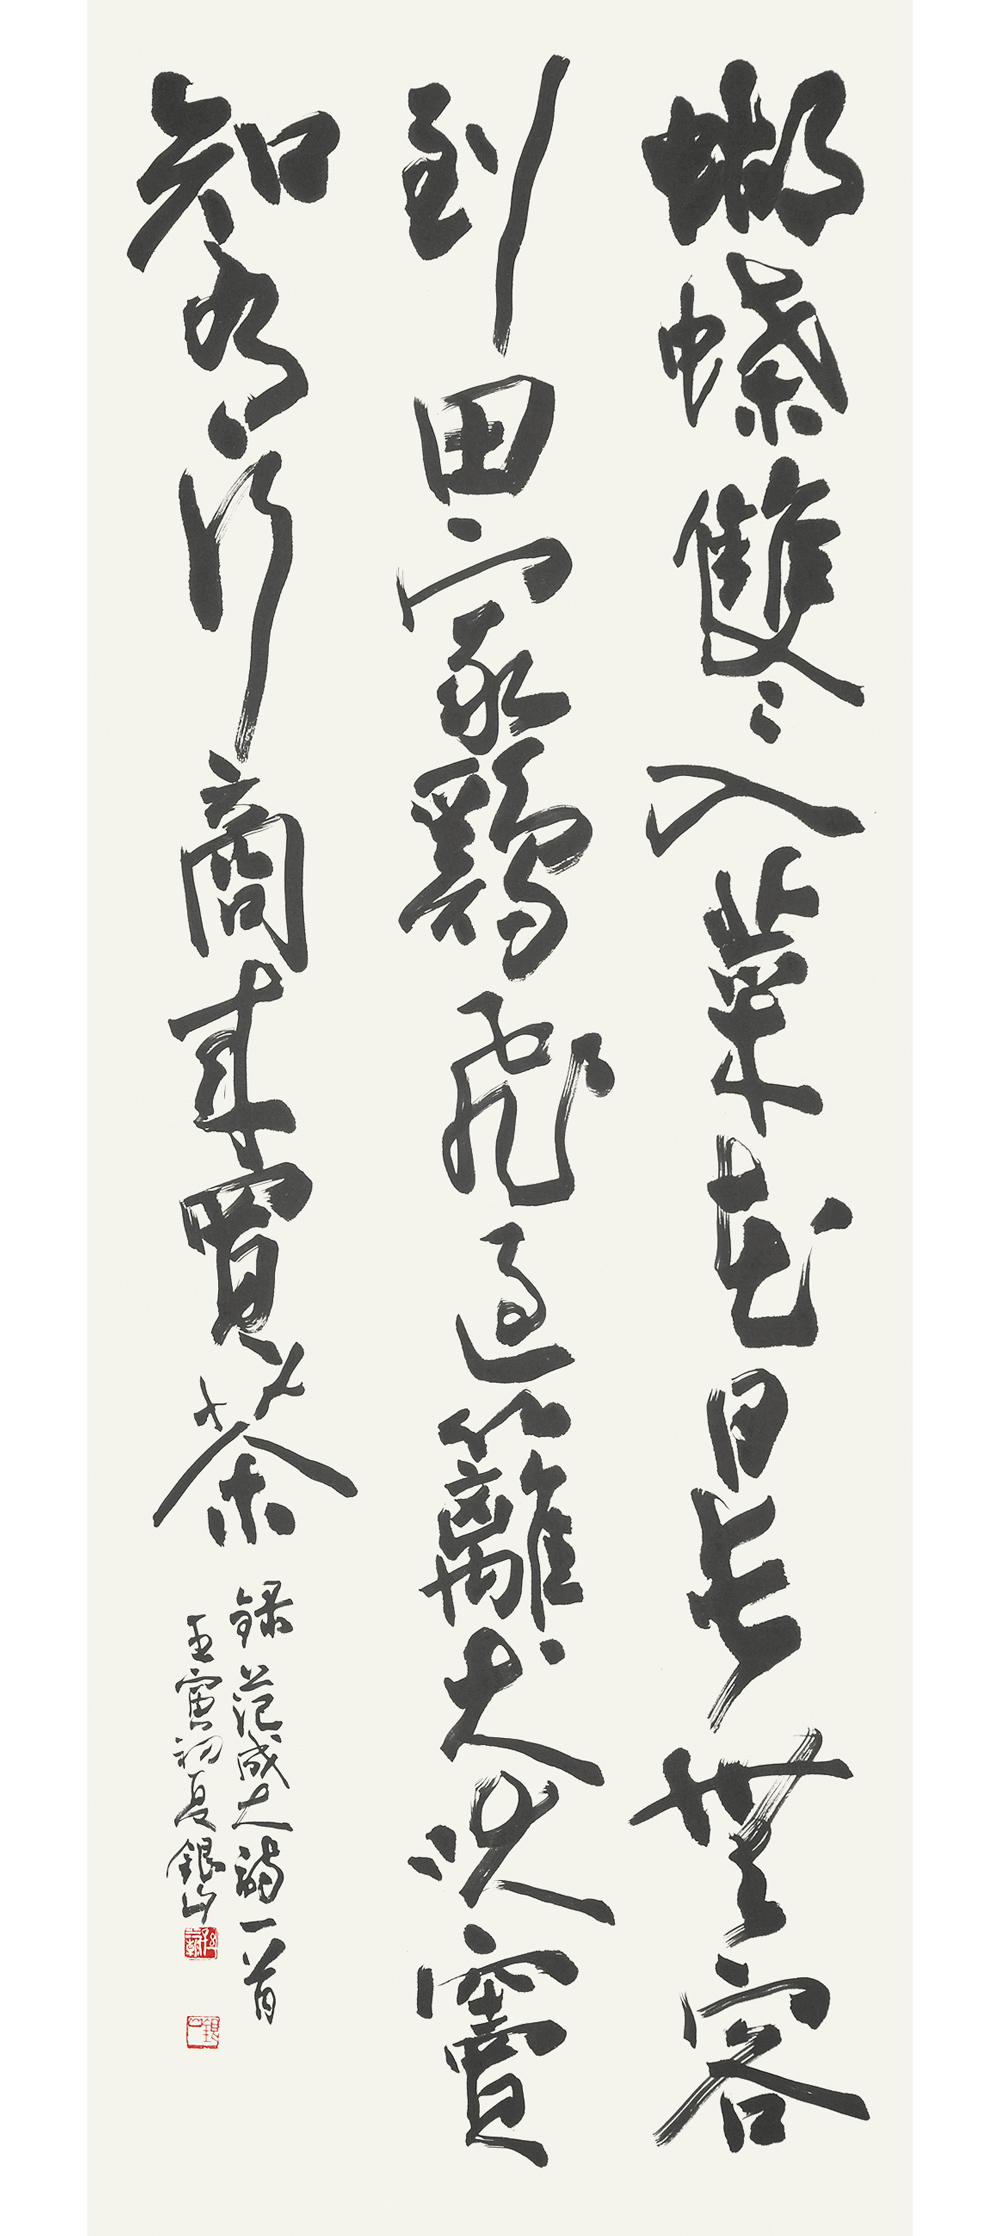 蝴蝶雙〻入菜花日長無客
到田家鷄飛過籬犬吠竇
知有行商來買茶
録范成大詩一首
壬寅初夏銀山